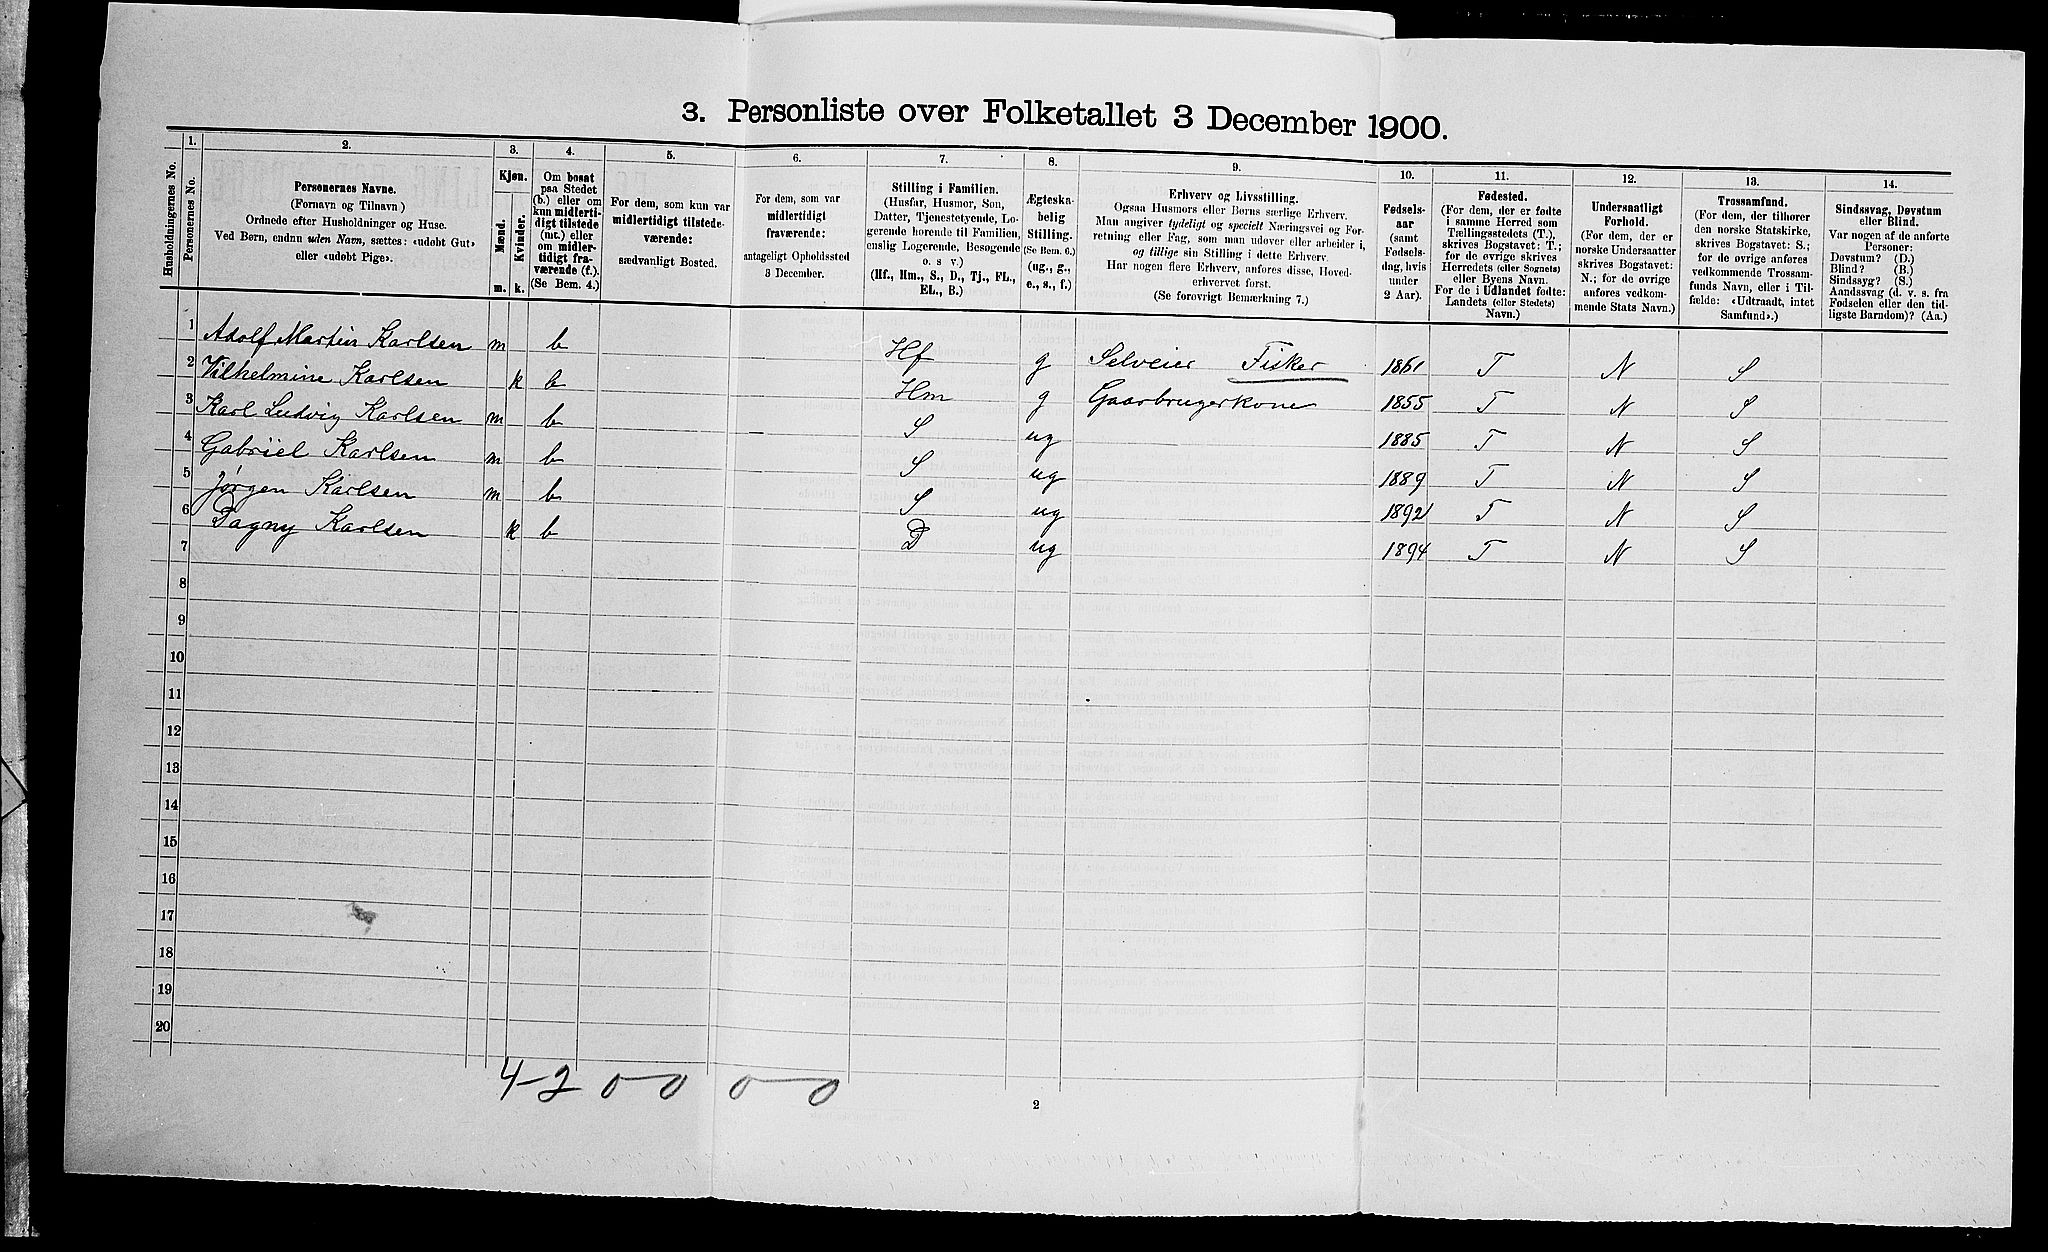 3. Personliste over Folketallet 3 December 1900.
Husholdningernes No.
1.
Personernes No.
2.
Personernes Navne.
(Fornavn og Tilnavn)
Ordnede efter Husholdninger og Huse.
Ved Børn, endnu uden Navn, sættes: «udøbt Gut»
eller «udøbt Pige».
3.
Kjøn.
Mænd.
Kvinder.
m.
k.
4.
Om bosat
paa Stedet
(b.) eller om
kun midlerti-
digt tilstede
(mt.) eller
om midler-
tidigt fra-
værende (f.).
(Se Bem. 4.)
5.
For dem, som kun var
midlertidigt tilstede-
værende:
sædvanligt Bosted.
6.
For dem, som var
midlertidigt
fraværende:
antageligt Opholdssted
3 December.
7.
Stilling i Familien.
(Husfar, Husmor, Søn,
Datter, Tjenestetyende, Lo-
gerende hørende til Familien,
enslig Logerende, Besøgende
o. s v.)
(Hf., Hm., S., D., Tj., FL.,
EL., B.)
8.
Ægteska-
belig
Stilling.
(Se Bem. 6.)
(ug., g.,
e., s., f.)
9.
Erhverv og Livsstilling.
Ogsaa Husmors eller Børns særlige Erhverv.
Man angiver tydeligt og specielt Næringsvei og For-
retning eller Fag, som man udøver eller arbeider i,
og tillige sin Stilling i dette Erhverv.
Har nogen flere Erhverv, anføres disse, Hoved-
erhvervet først.
(Se forøvrigt Bemærkning 7.)
10.
Fødsels-
aar
(samt
Fødsels-
dag, hvis
under
2 Aar).
11.
Fødested.
(For dem, der er fødte
i samme Herred som
Tællingsstedets (T.),
skrives Bogstavet: T.;
for de øvrige skrives
Herredets (eller Sognets)
eller Byens Navn.
For de i Udlandet fødte:
Landets (eller Stedets)
Navn.)
12.
Undersaatligt
Forhold.
(For dem, der er
norske Undersaatter
skrives Bogstavet:
N.; for de øvrige
anføres vedkom-
mende Stats Navn.)
13.
Trossamfund.
(For dem, der tilhører
den norske Statskirke,
skrives Bogstavet: S.;
for de øvrige anføres
vedkommende Trossam-
funds Navn, eller i Til-
fælde: «Udtraadt, intet
Samfund».)
14.
Sindssvag, Døvstum
eller Blind.
Var nogen af de anførte
Personer:
Døvstum? (D.)
Blind? (B.)
Sindssyg? (S.)
Aandssvag (d. v. s. fra
Fødselen eller den tid-
ligste Barndom)? (Aa.)
1 Adolf Martin Karlsen m b Hf g Selveier Fisker 1861 T N S
2 Vilhelmine Karlsen k b Hm g Gaarbrugerkone 1855 T N S
3 Karl Ludvig Karlsen m b S ug 1885 T N S
4 Gabriel Karlsen m b S ug 1889 T N S
5 Jørgen Karlsen m b S ug 1892 T N S
6 Dagny Karlsen k b D ug 1894 T N S
7
8
9
10
11
12
13
14
15
16
17
18
19
20
4-2 0-0 0-0
2